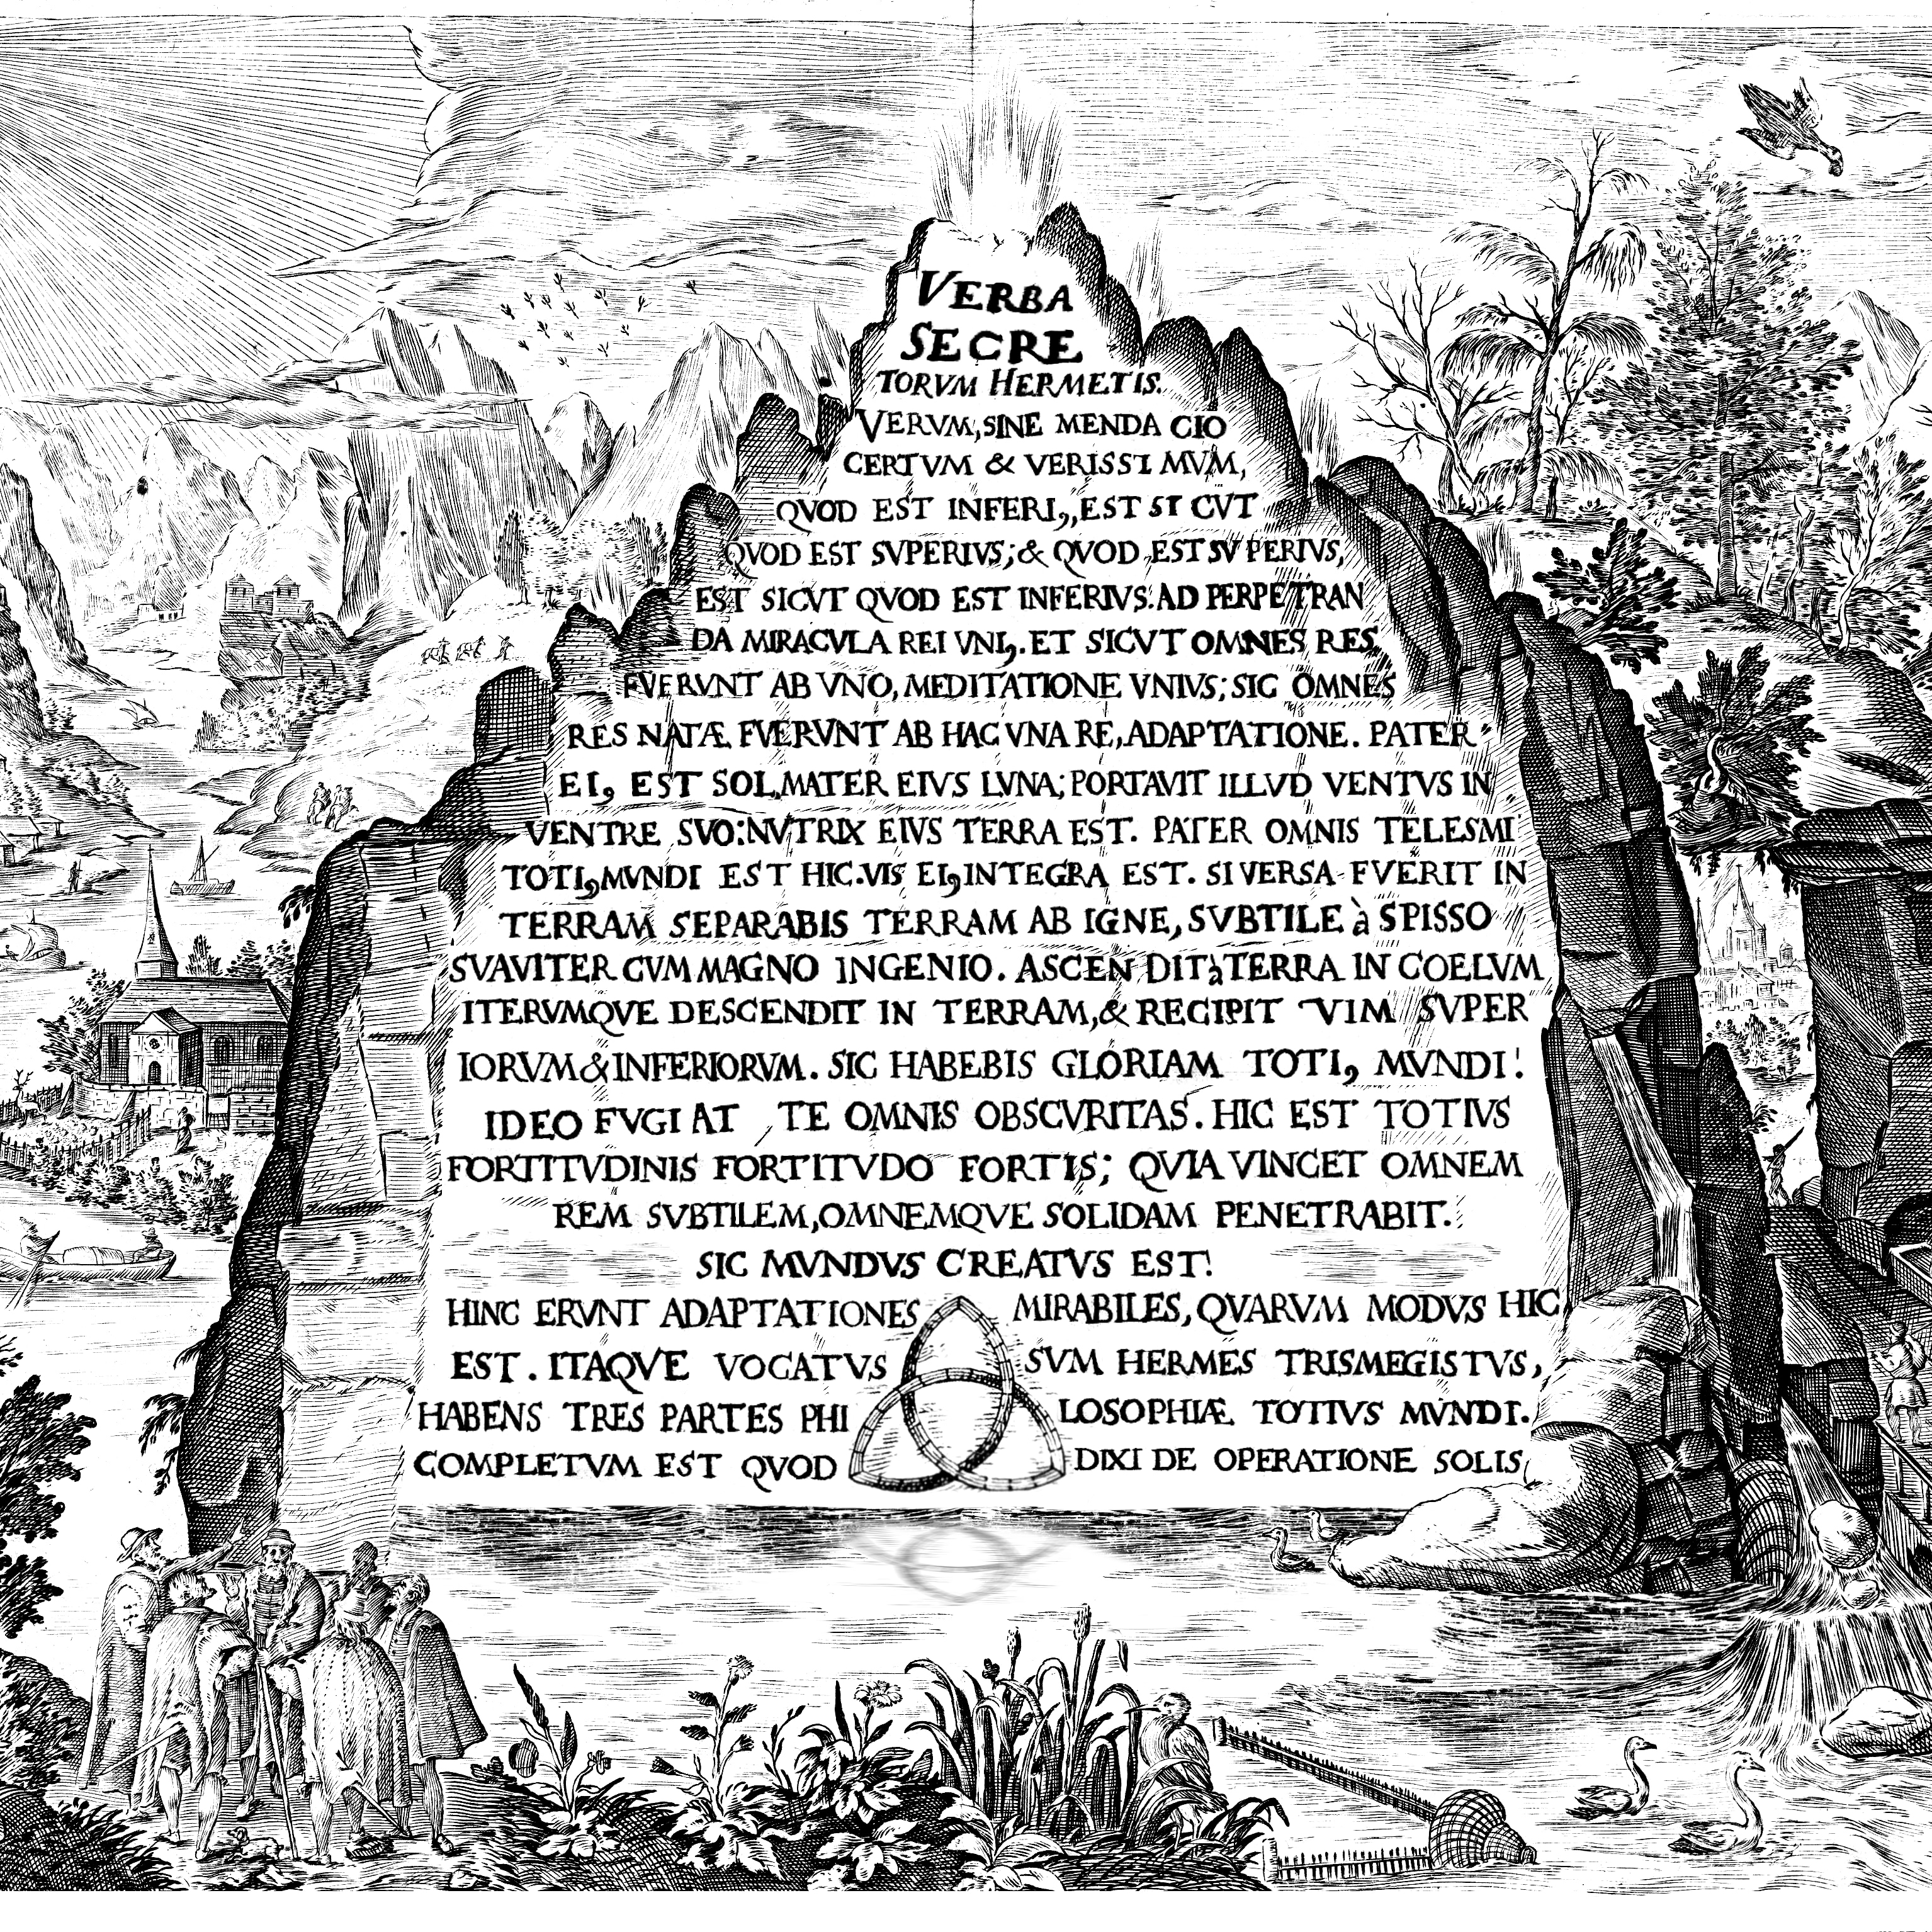 VERBA
SECRE
TORVM HERMETIS.
VERVM, SINE MENDA CIO
CERTVM & VERISSI MVM,
QVOD EST INFERI9, EST SI CVT
QVOD EST SVPERIVS; & QVOD EST SV PERIVS,
EST SICVT QVOD EST INFERIVS: AD PERPETRAN
DA MIRACVLA REI VNI9. ET SICVT OMNES RES
FVERVNT AB VNO, MEDITATIONE VNIVS; SIC OMNES
RES NATÆ FVERVNT AB HAC VNA RE, ADAPTATIONE. PATER
EI9 EST SOL, MATER EIVS LVNA; PORTAVIT ILLVD VENTVS IN
VENTRE SVO: NVTRIX EIVS TERRA EST. PATER OMNIS TELESMI
TOTI9 MVNDI EST HIC. VIS EI9 INTEGRA EST. SI VERSA FVERIT IN
TERRAM SEPARABIS TERRAM AB IGNE, SVBTILE à SPISSO
SVAVITER CVM MAGNO INGENIO. ASCEN DIT à TERRA IN COELVM
ITERVMQVE DESCENDIT IN TERRAM, & RECIPIT VIM SVPER
IORVM & INFERIORVM. SIC HABEBIS GLORIAM TOTI9 MVNDI!
IDEO FVGI AT TE OMNIS OBSCVRITAS. HIC EST TOTIVS
FORTITVDINIS FORTITVDO FORTIS; QVIA VINCET OMNEM
REM SVBTILEM, OMNEMQVE SOLIDAM PENETRABIT.
SIC MVNDVS CREATVS EST!
HINC ERVNT ADAPTATIONES MIRABILES, QVARVM MODVS HIC
EST. ITAQVE VOCATVS SVM HERMES TRISMEGISTVS,
HABENS TRES PARTES PHI LOSOPHIÆ TOTIVS MVNDI.
COMPLETVM EST QVOD DIXI DE OPERATIONE SOLIS